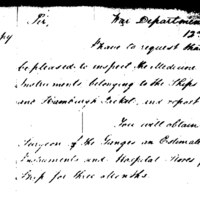 Sir, War Department
py 12
I have to request that
be pleased to inspect the Medicine
Instruments belonging to the Ships
and Packet, and report
You will obtain
Surgeon of the Ganges an Estimate
Instruments and Hospital Stores
Ship for three months.